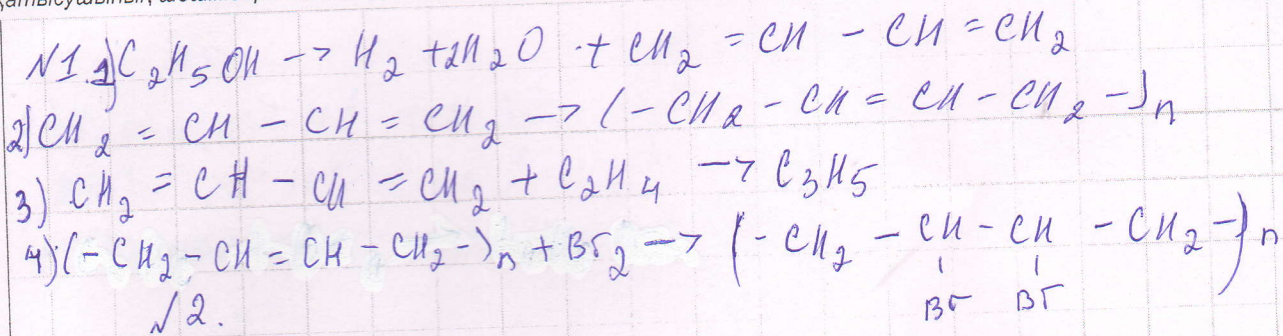 №1. 1) C₂H₅OH → H₂ + 2H₂O + CH₂ = CH – CH = CH₂
2) CH₂ = CH – CH = CH₂ → (– CH₂ – CH = CH – CH₂ –)n
3) CH₂ = CH – CH = CH₂ + C₂H₄ → C₃H₅
4) (– CH₂ – CH = CH – CH₂ –)n + Br₂ → (– CH₂ – CH – CH – CH₂ –)n
Br Br
√2.